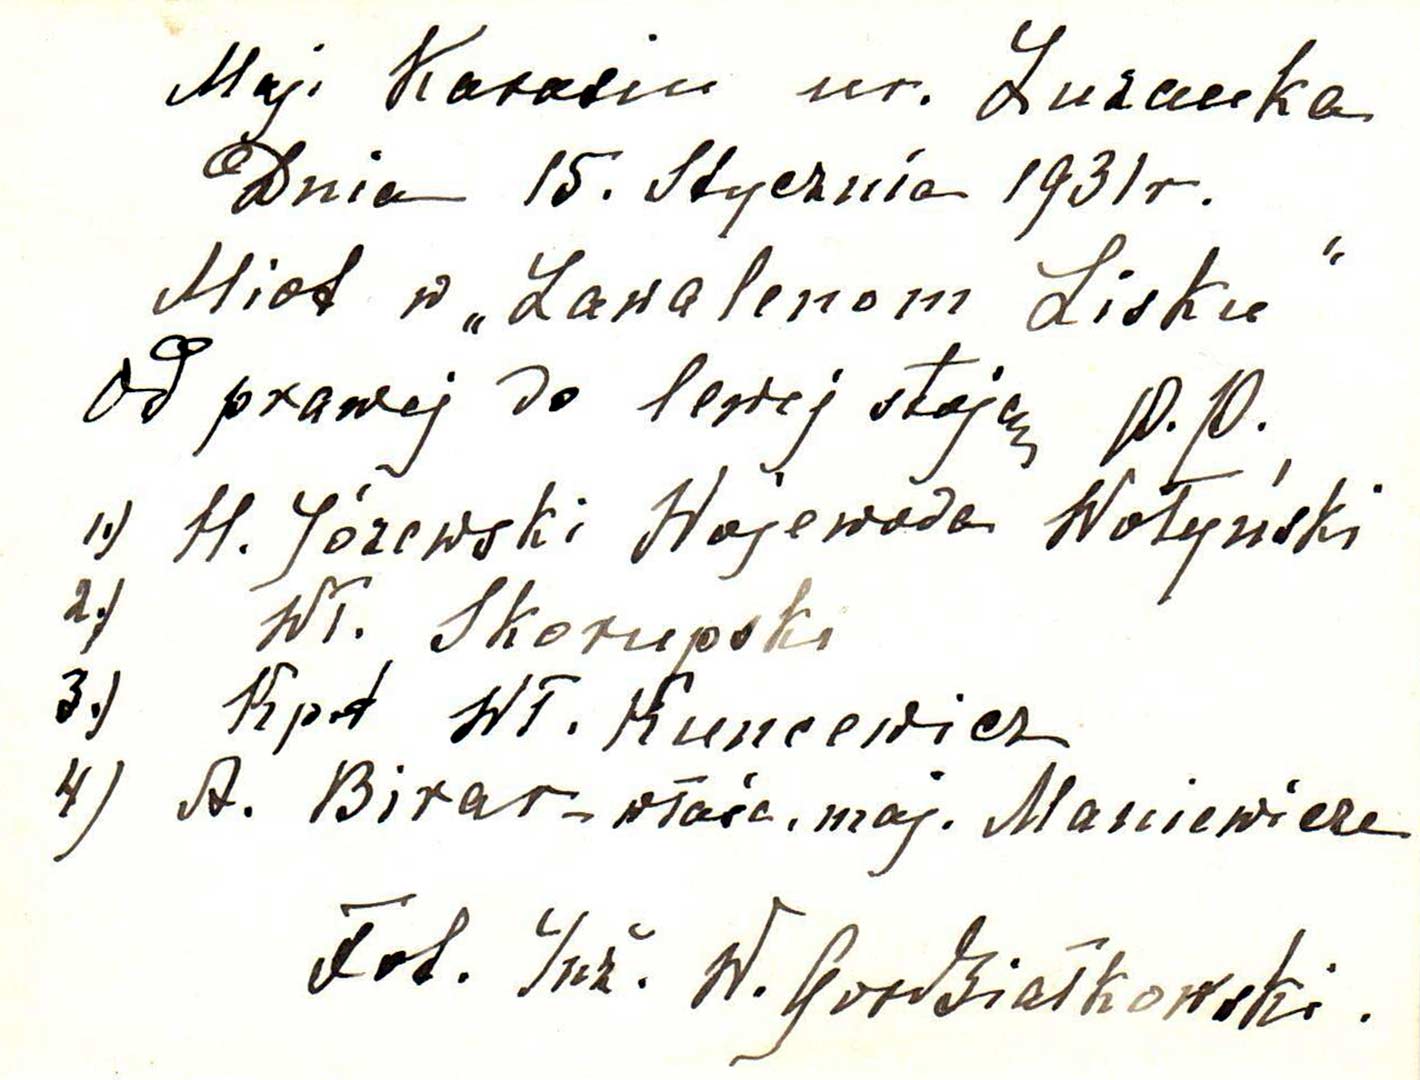 Maj. Karasin ur. Łuzanka
Dnia 15. Stycznia 1931 r.
Miot w „Zawalenom Lisku"
Od prawej do lewej stoją P.P.
1.) H. Józewski Wojewoda Wołyński
2.) Wł. Skorupski
3.) Kpt Wł. Kuncewicz
4) A. Birar - właśc. maj. Maniewicze
Fot. Inż. W. Gordziałkowski.